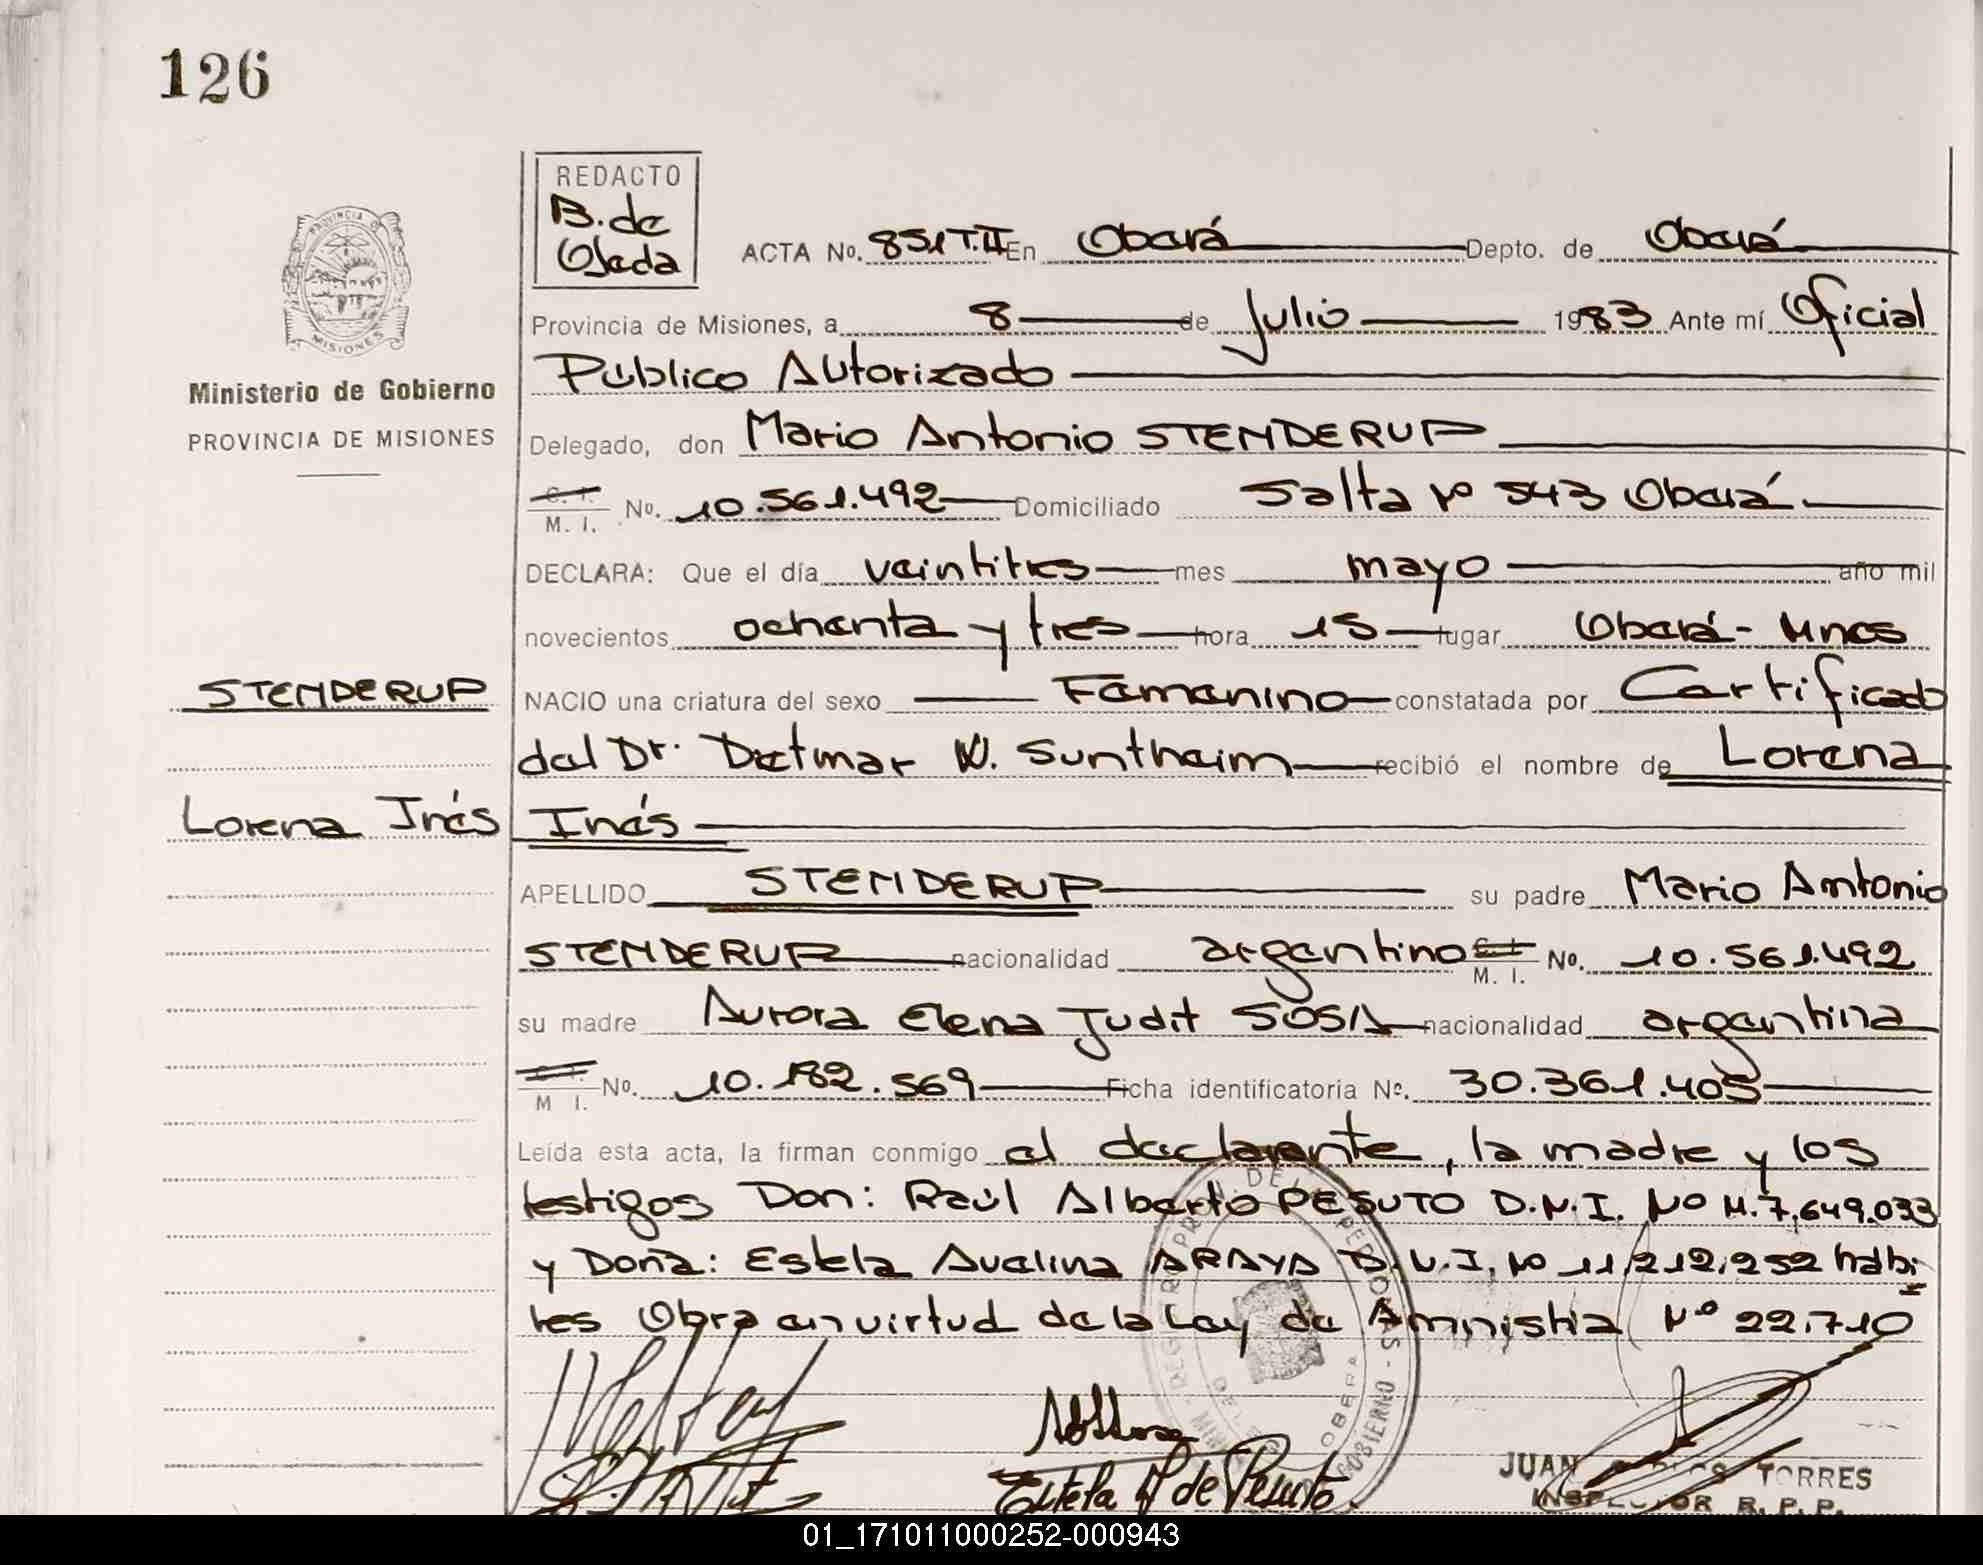 126
REDACTO
B. de
Ojeda
ACTA No. 851 T.II En Oberá Depto. de Oberá
Provincia de Misiones, a 8 de Julio 1983 Ante mí Oficial
Público Autorizado
PROVINCIA DE MISIONES
Ministerio de Gobierno
PROVINCIA DE MISIONES
Delegado, don Mario Antonio STENDERUP
C. I.
M. I. No. 10.561.492 Domiciliado Salta Nº 543 Oberá
DECLARA: Que el día veintitres mes mayo año mil
novecientos ochenta y tres hora 15 lugar Oberá - Mnes
STENDERUP
NACIO una criatura del sexo Femenino constatada por Certificado
del Dr. Dietmar W. Suntheim recibió el nombre de Lorena
Lorena Inés
Inés
APELLIDO STENDERUP su padre Mario Antonio
STENDERUP nacionalidad argentino C. I. M. I. No. 10.561.492
su madre Aurora Elena Judit SOSA nacionalidad argentina
C. I. M I. No. 10.182.569 Ficha identificatoria Nº. 30.361.405
Leída esta acta, la firman conmigo el declarante, la madre y los
testigos Don: Raúl Alberto PESUTO D.N.I. Nº M.7.649.033
y Doña: Estela Avelina ARAYA D.N.I. Nº 11.212.252 hábi
les Obra en virtud de la Ley de Amnistia Nº 22.710
OBERA
Estela A de Pesuto.
JUAN CARLOS TORRES
INSPECTOR R. P. P.
01_171011000252-000943